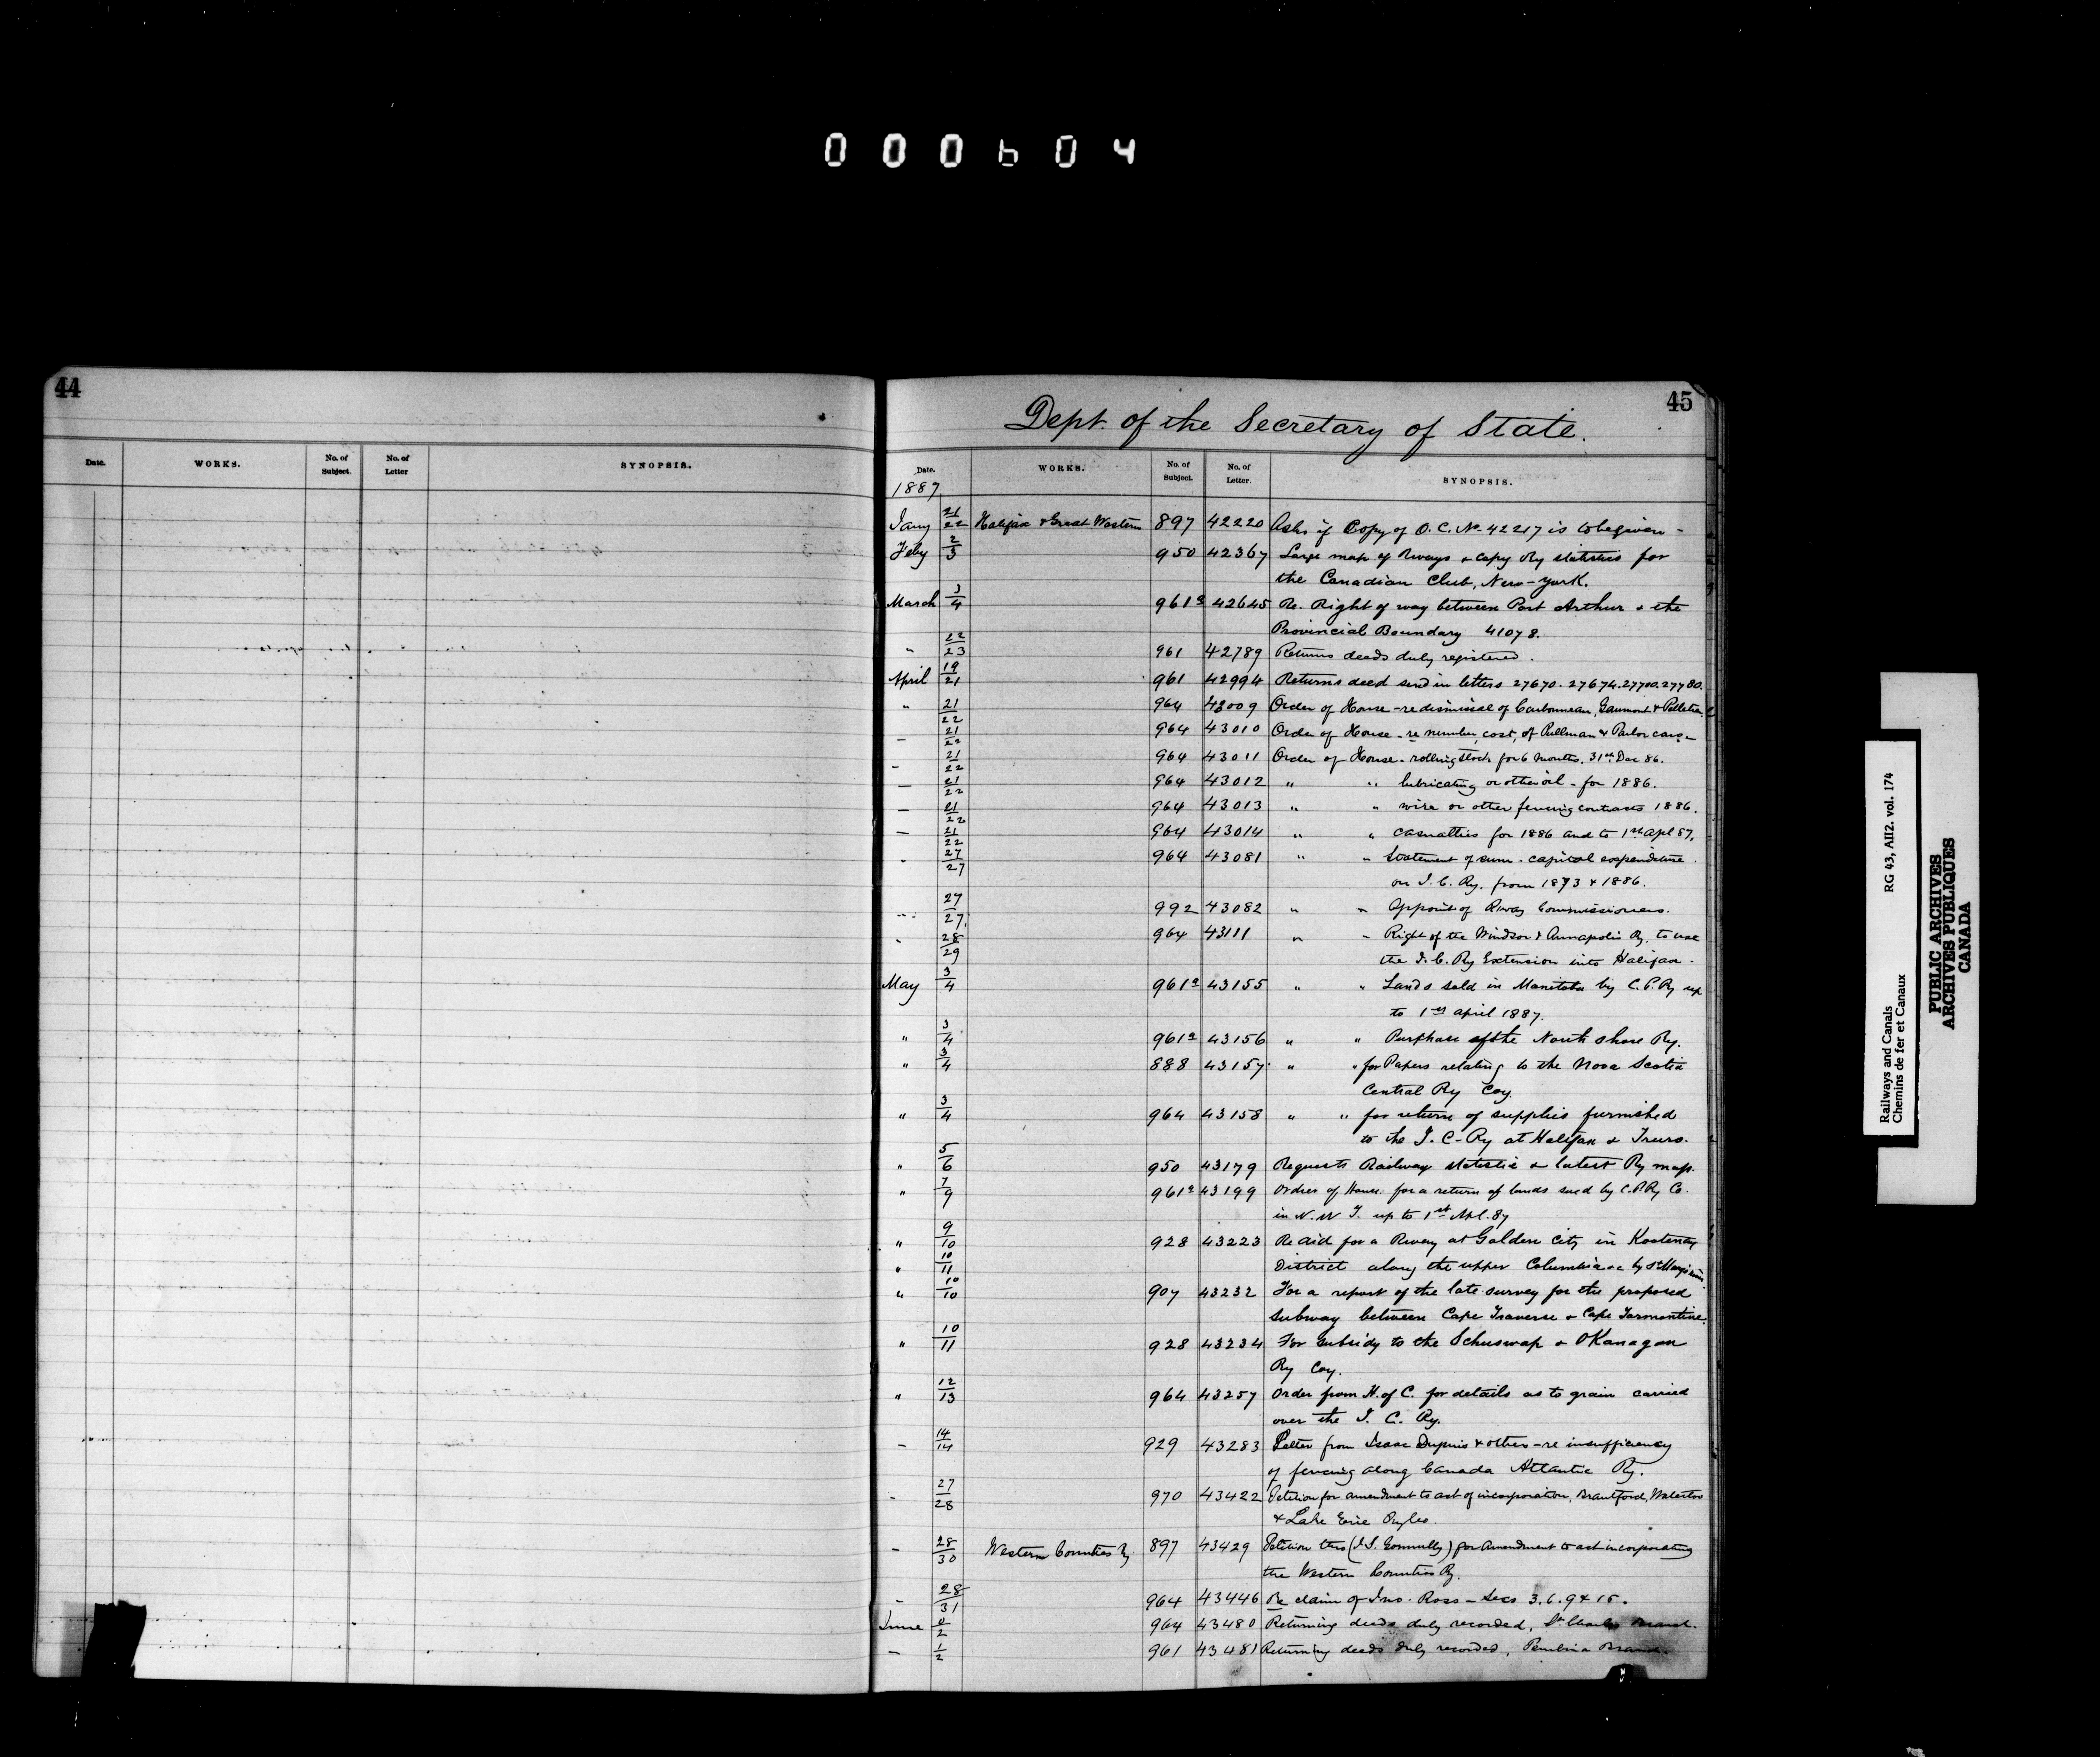 000604
44
Date. WORKS. No. of Subject. No. of Letter SYNOPSIS.
45
Dept. of the Secretary of State.
Date. WORKS. No. of Subject. No. of Letter. SYNOPSIS.
1887
Jany 21/22 Halifax & Great Western 897 42220 Asks if Copy of O.C. No. 42217 is to be given -
Feby 2/3 950 42367 Large map of Rways & copy Ry statistics for
the Canadian Club, New-York.
March 3/4 961a 42645 Re. Right of way between Port Arthur & the
Provincial Boundary 41078.
" 22/23 961 42789 Returns deeds duly registered.
April 19/21 961 42994 Returns deed send in letters 27670. 27674. 27700. 27780.
" 21/22 964 43009 Order of House - re dismissal of Carbonneau, Gaumont & Pelletier.
- 21/22 964 43010 Order of House - re number, cost, of Pullman & Parlor cars -
- 21/22 964 43011 Order of House - rolling stock for 6 months, 31st Dec 86.
- 21/22 964 43012 " " lubricating or other oil - for 1886.
- 21/22 964 43013 " " wire or other fencing contracts 1886.
- 21/22 964 43014 " " casualties for 1886 and to 1st Apl 87.
" 27/27 964 43081 " " Statement of sum - capital expenditure
on I. C. Ry. from 1873 & 1886.
" 27/27 992 43082 " " Appoint of Rway Commissioners.
" 28/29 964 43111 " " Right of the Windsor & Annapolis Ry. to use
the I. C. Ry Extension into Halifax.
May 3/4 961a 43155 " " Lands sold in Manitoba by C. P. Ry up
to 1st april 1887.
" 3/4 961a 43156 " " Purchase of the North Shore Ry.
" 3/4 888 43157 " " for Papers relating to the Nova Scotia
Central Ry Coy.
" 3/4 964 43158 " " for return of supplies furnished
to the I. C. Ry at Halifax & Truro.
" 5/6 950 43179 Requests Railway statistics & latest Ry map.
" 7/9 961a 43199 Order of House for a return of lands sued by C.P.Ry Co.
in N. W T. up to 1st Apl. 87
" 9/10 928 43223 Re aid for a Rway at Golden City in Kootenay
" 10/11 District along the upper Columbia &c by
" 10/10 907 43232 For a report of the late survey for the proposed
subway between Cape Traverse & Cape Tormentine.
" 10/11 928 43234 For subsidy to the Schuswap & OKanagan
Ry Coy.
" 12/13 964 43257 Order from H. of C. for details as to grain carried
over the I. C. Ry.
- 14/14 929 43283 Letter from Isaac Dupuis & others - re insufficiency
of fencing along Canada Atlantic Ry.
- 27/28 970 43422 Petition for amendment to act of incorporation, Brantford, Waterloo
& Lake Erie
- 28/30 Western Counties Ry 897 43429 Petition thro for Amendment to act incorporating
the Western Counties Ry.
- 28/31 964 43446 Re claim of Jno. Ross - Secs 3. 6. 9 & 15.
June 2/2 964 43480 Returning deeds duly recorded, St Charles Branch.
- 1/2 961 43481 Returning deeds duly recorded, Pembina Branch.
Railways and Canals RG 43, AII2. vol. 174
Chemins de fer et Canaux
PUBLIC ARCHIVES
ARCHIVES PUBLIQUES
CANADA